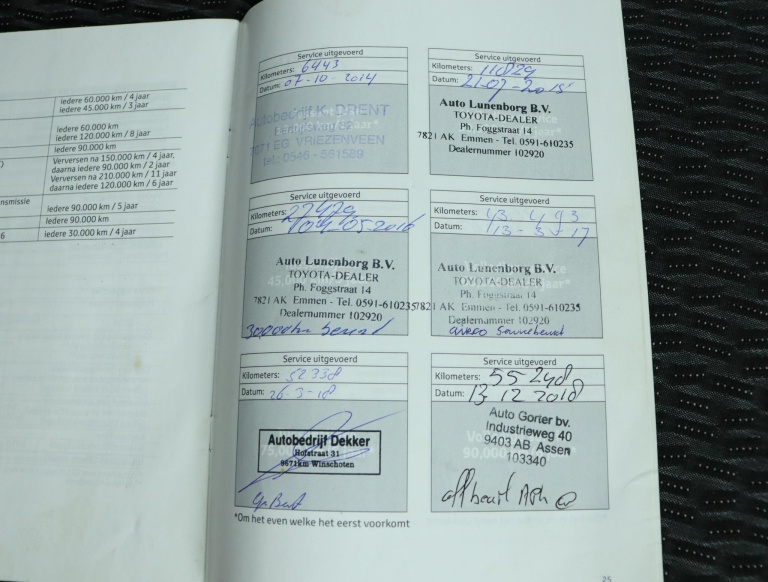 iedere 60.000 km / 4 jaar
iedere 45.000 km / 3 jaar
iedere 60.000 km
iedere 120.000 km / 8 jaar
iedere 90.000 km
Verversen na 150.000 km / 4 jaar,
daarna iedere 90.000 km / 2 jaar
Verversen na 210.000 km / 11 jaar
daarna iedere 120.000 km / 6 jaar
nsmissie
iedere 90.000 km / 5 jaar
iedere 90.000 km
6 iedere 30.000 km / 4 jaar
Service uitgevoerd
Kilometers: 6443
Datum: 07-10-2014
Autobedrijf K. DRENT
7671 EG VRIEZENVEEN
tel.: 0546 - 561589
Service uitgevoerd
Kilometers:
Datum: 21-07-2015
Auto Lunenborg B.V.
TOYOTA-DEALER
Ph. Foggstraat 14
7821 AK Emmen - Tel. 0591-610235
Dealernummer 102920
Service uitgevoerd
Kilometers: 27479
Datum: 04-05-2016
45,0
Auto Lunenborg B.V.
TOYOTA-DEALER
Ph. Foggstraat 14
7821 AK Emmen - Tel. 0591-610235
Dealernummer 102920
30.000km beurt
Service uitgevoerd
Kilometers: 43 493
Datum: 13-3-17
Auto Lunenborg B.V.
TOYOTA-DEALER
Ph. Foggstraat 14
7821 AK Emmen - Tel. 0591-610235
Dealernummer 102920
Service uitgevoerd
Kilometers: 52338
Datum: 26-3-18
75,000
Autobedrijf Dekker
Hofstraat 31
9671km Winschoten
Service uitgevoerd
Kilometers: 55 248
Datum: 13 12 2018
90,000
Auto Gorter bv.
Industrieweg 40
9403 AB Assen
103340
*Om het even welke het eerst voorkomt
25